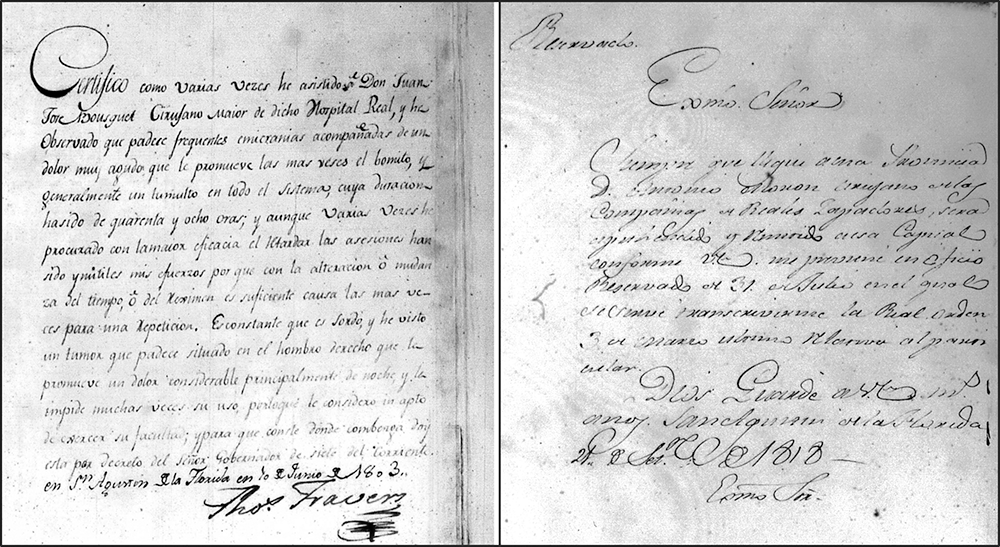 Certifico como varias vezes he asistido a Don Juan
Jose Bousquet Cirujano Maior de dicho Hospital Real, y he
Observado que padece frequentes emicranias acompañadas de un
dolor muy agudo que le promueve las mas veses el bomito, y
generalmente un tumulto en todo el sistema, cuya duracion
hasido de quarenta y ocho oras; y aunque varias vezes he
procurado con lamaior eficacia el retardar las asesiones han
sido ynutiles mis efuerzos por que con la alteracion ô mudan
za del tiempo, ô del Reximen es suficiente causa las mas ve
ces para una repeticion. Es constante que es sordo, y he visto
un tumor que padece situado en el hombro derecho que le
promueve un dolor considerable principalmente de noche, y le
impide muchas veces su uso, porloqûe le considero in apto
de exercer su facultad; y para que conste donde combenga doy
esta por decreto del señor Gobernador de siete del corriente
en Sn. Agustin de la Florida en 10 de Junio de 1803.
Thos. Travers
Reservado.
Exmo. Señor
Siempre que llegue a esta Provincia
D. Antonio Moron cirujano de las
Compañias de Reales Zapadores, sera
y remitido a esa Capital
conforme V.E. me previene en oficio
Reservado de 31. de Julio en el qual
se sirve transcrivirme la Real orden
3 de Marzo ultimo relativa al parti
cular.
Dios Guarde a V.E. ms.
anos. San Agustin de la Florida
de 1818
Exmo Sor.